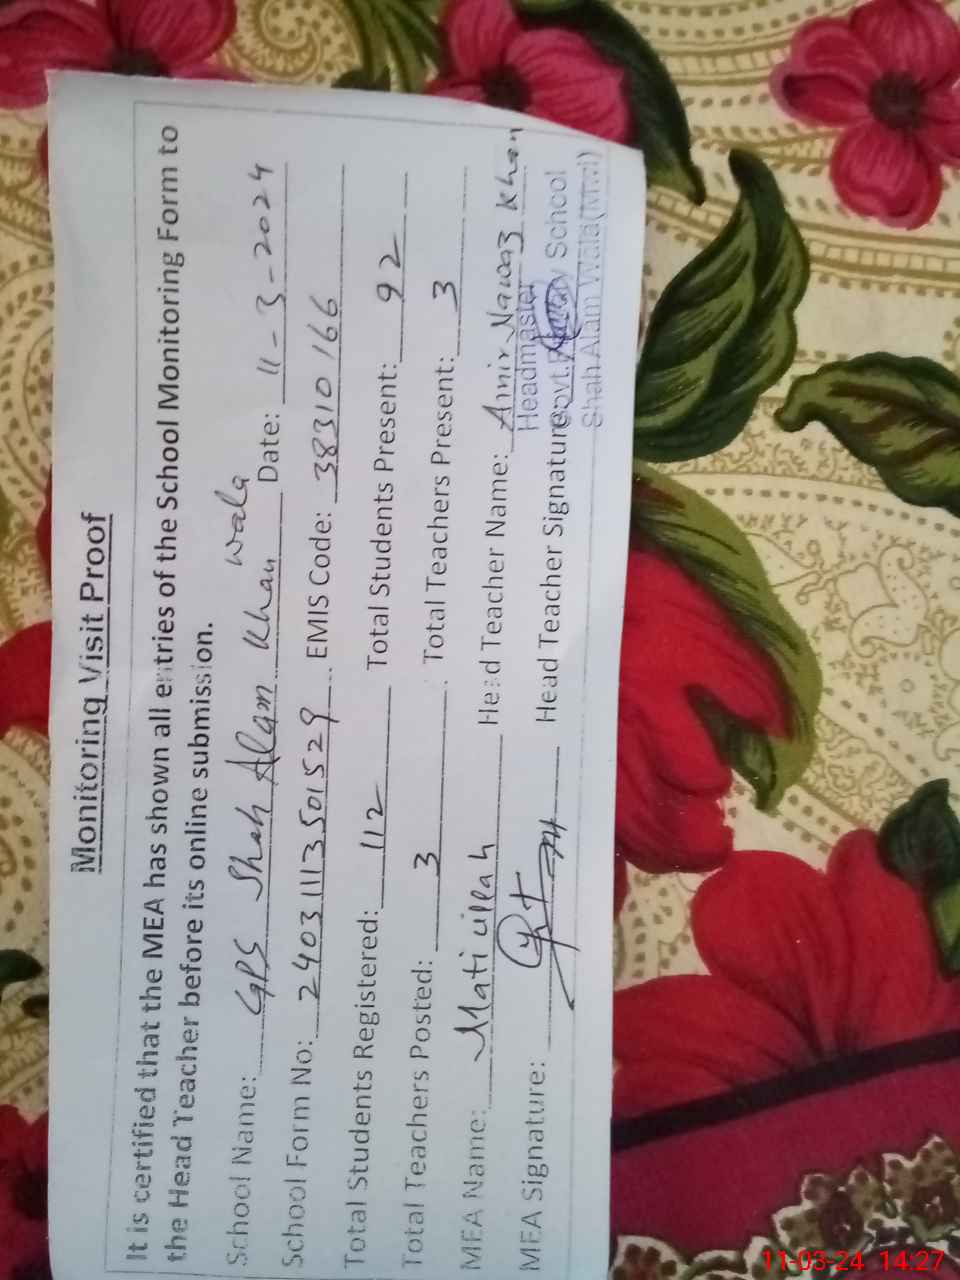 Monitoring Visit Proof
It is certified that the MEA has shown all entries of the School Monitoring Form to
the Head Teacher before its online submission.
School Name: GPS Shah Alam Khan wala Date: 11-3-2024
School Form No: 24031113501529 EMIS Code: 38310166
Total Students Registered: 112 Total Students Present: 92
Total Teachers Posted: 3 Total Teachers Present: 3
MEA Name: Mati ullah Head Teacher Name: Amir Nawaz Khan
MEA Signature: Head Teacher Signature:
Headmaster
Govt. Primary School
Shah Alam Wala (Mwi)
11-03-24 14:27